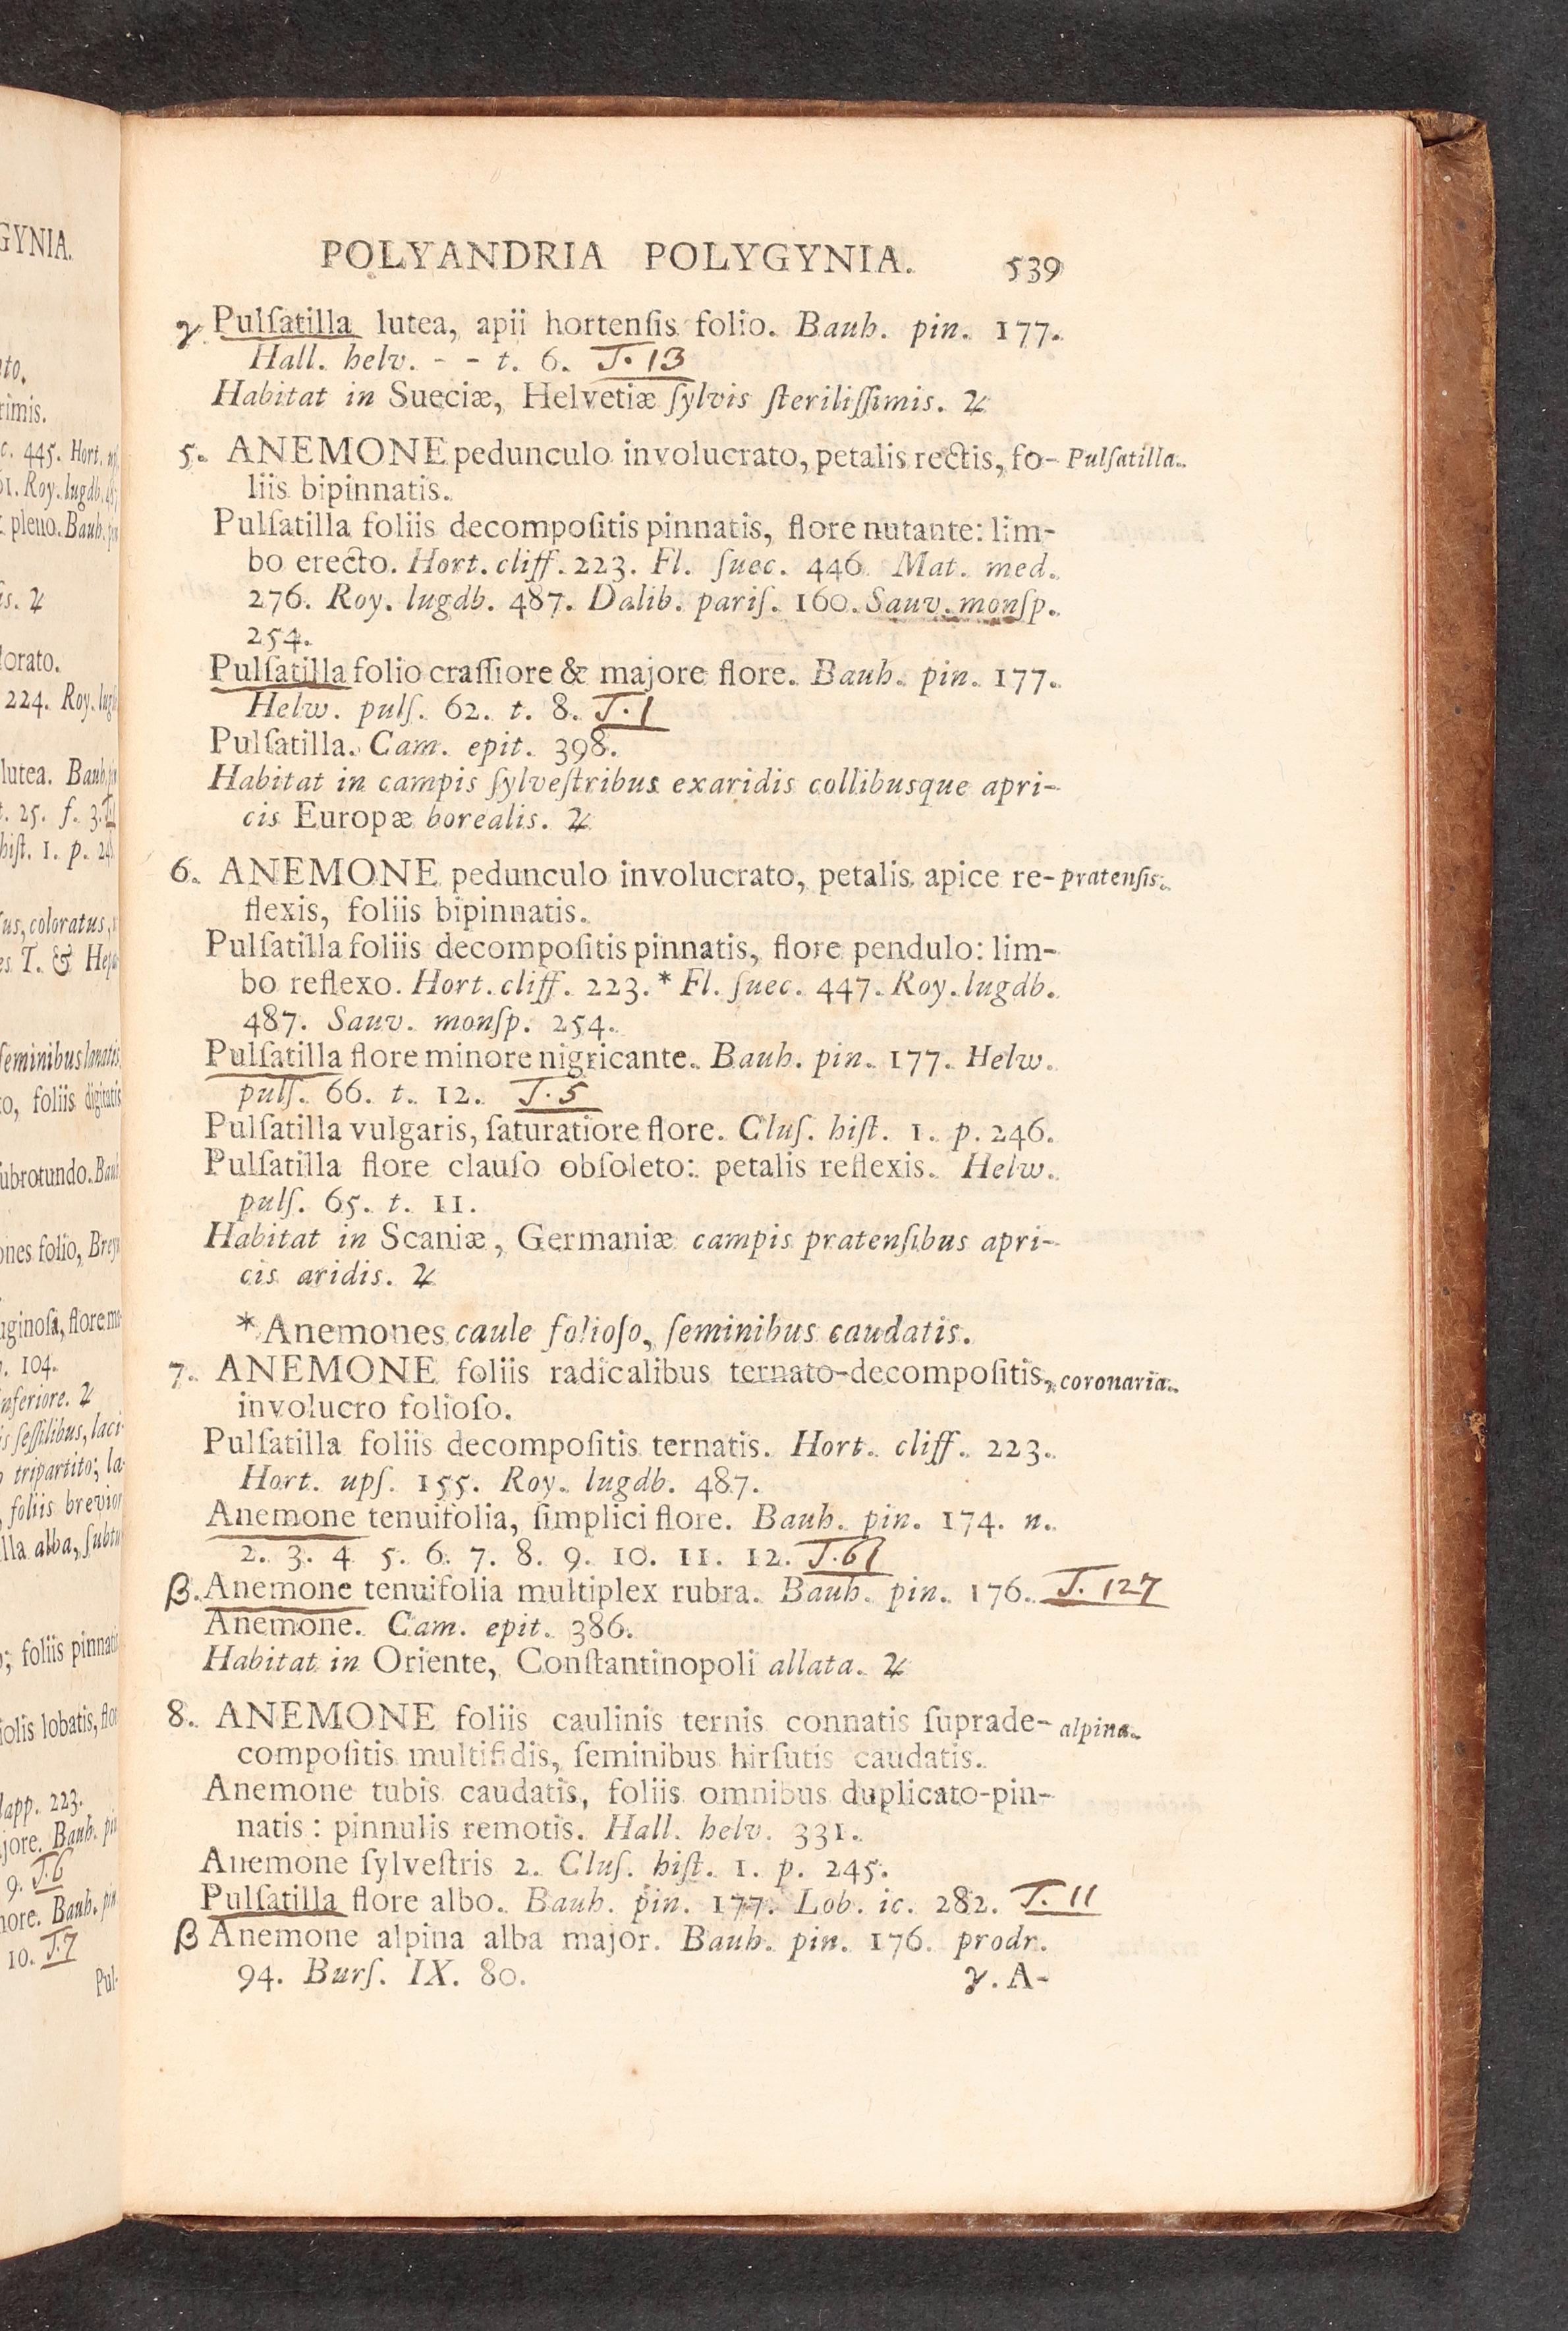 POLYANDRIA POLYGYNIA. 539
γ. Pulſatilla lutea, apii hortenſis folio. Bauh. pin. 177.
Hall. helv. - - t. 6. T. 13
Habitat in Sueciæ, Helvetiæ ſylvis ſteriliſſimis. ♃
5. ANEMONE pedunculo involucrato, petalis rectis, fo- Pulſatilla.
liis bipinnatis.
Pulſatilla foliis decompoſitis pinnatis, flore nutante: lim-
bo erecto. Hort. cliff. 223. Fl. ſuec. 446. Mat. med.
276. Roy. lugdb. 487. Dalib. pariſ. 160. Sauv. monſp.
254.
Pulſatilla folio craſſiore & majore flore. Bauh. pin. 177.
Helw. pulſ. 62. t. 8. T. 1
Pulſatilla. Cam. epit. 398.
Habitat in campis ſylveſtribus exaridis collibusque apri-
cis Europæ borealis. ♃
6. ANEMONE pedunculo involucrato, petalis apice re- pratenſis.
flexis, foliis bipinnatis.
Pulſatilla foliis decompoſitis pinnatis, flore pendulo: lim-
bo reflexo. Hort. cliff. 223. * Fl. ſuec. 447. Roy. lugdb.
487. Sauv. monſp. 254.
Pulſatilla flore minore nigricante. Bauh. pin. 177. Helw.
pulſ. 66. t. 12. T. 5
Pulſatilla vulgaris, ſaturatiore flore. Cluſ. hiſt. 1. p. 246.
Pulſatilla flore clauſo obſoleto: petalis reflexis. Helw.
pulſ. 65. t. 11.
Habitat in Scaniæ, Germaniæ campis pratenſibus apri-
cis aridis. ♃
* Anemones caule folioſo, ſeminibus caudatis.
7. ANEMONE foliis radicalibus ternato-decompoſitis, coronaria.
involucro folioſo.
Pulſatilla foliis decompoſitis ternatis. Hort. cliff. 223.
Hort. upſ. 155. Roy. lugdb. 487.
Anemone tenuifolia, ſimplici flore. Bauh. pin. 174. n.
2. 3. 4 5. 6. 7. 8. 9. 10. 11. 12. T. 61
β. Anemone tenuifolia multiplex rubra. Bauh. pin. 176. T. 127
Anemone. Cam. epit. 386.
Habitat in Oriente, Conſtantinopoli allata. ♃
8. ANEMONE foliis caulinis ternis connatis ſuprade- alpina.
compoſitis multifidis, ſeminibus hirſutis caudatis.
Anemone tubis caudatis, foliis omnibus duplicato-pin-
natis: pinnulis remotis. Hall. helv. 331.
Anemone ſylveſtris 2. Cluſ. hiſt. 1. p. 245.
Pulſatilla flore albo. Bauh. pin. 177. Lob. ic. 282. T. 11
β Anemone alpina alba major. Bauh. pin. 176. prodr.
94. Burſ. IX. 80.
γ. A-